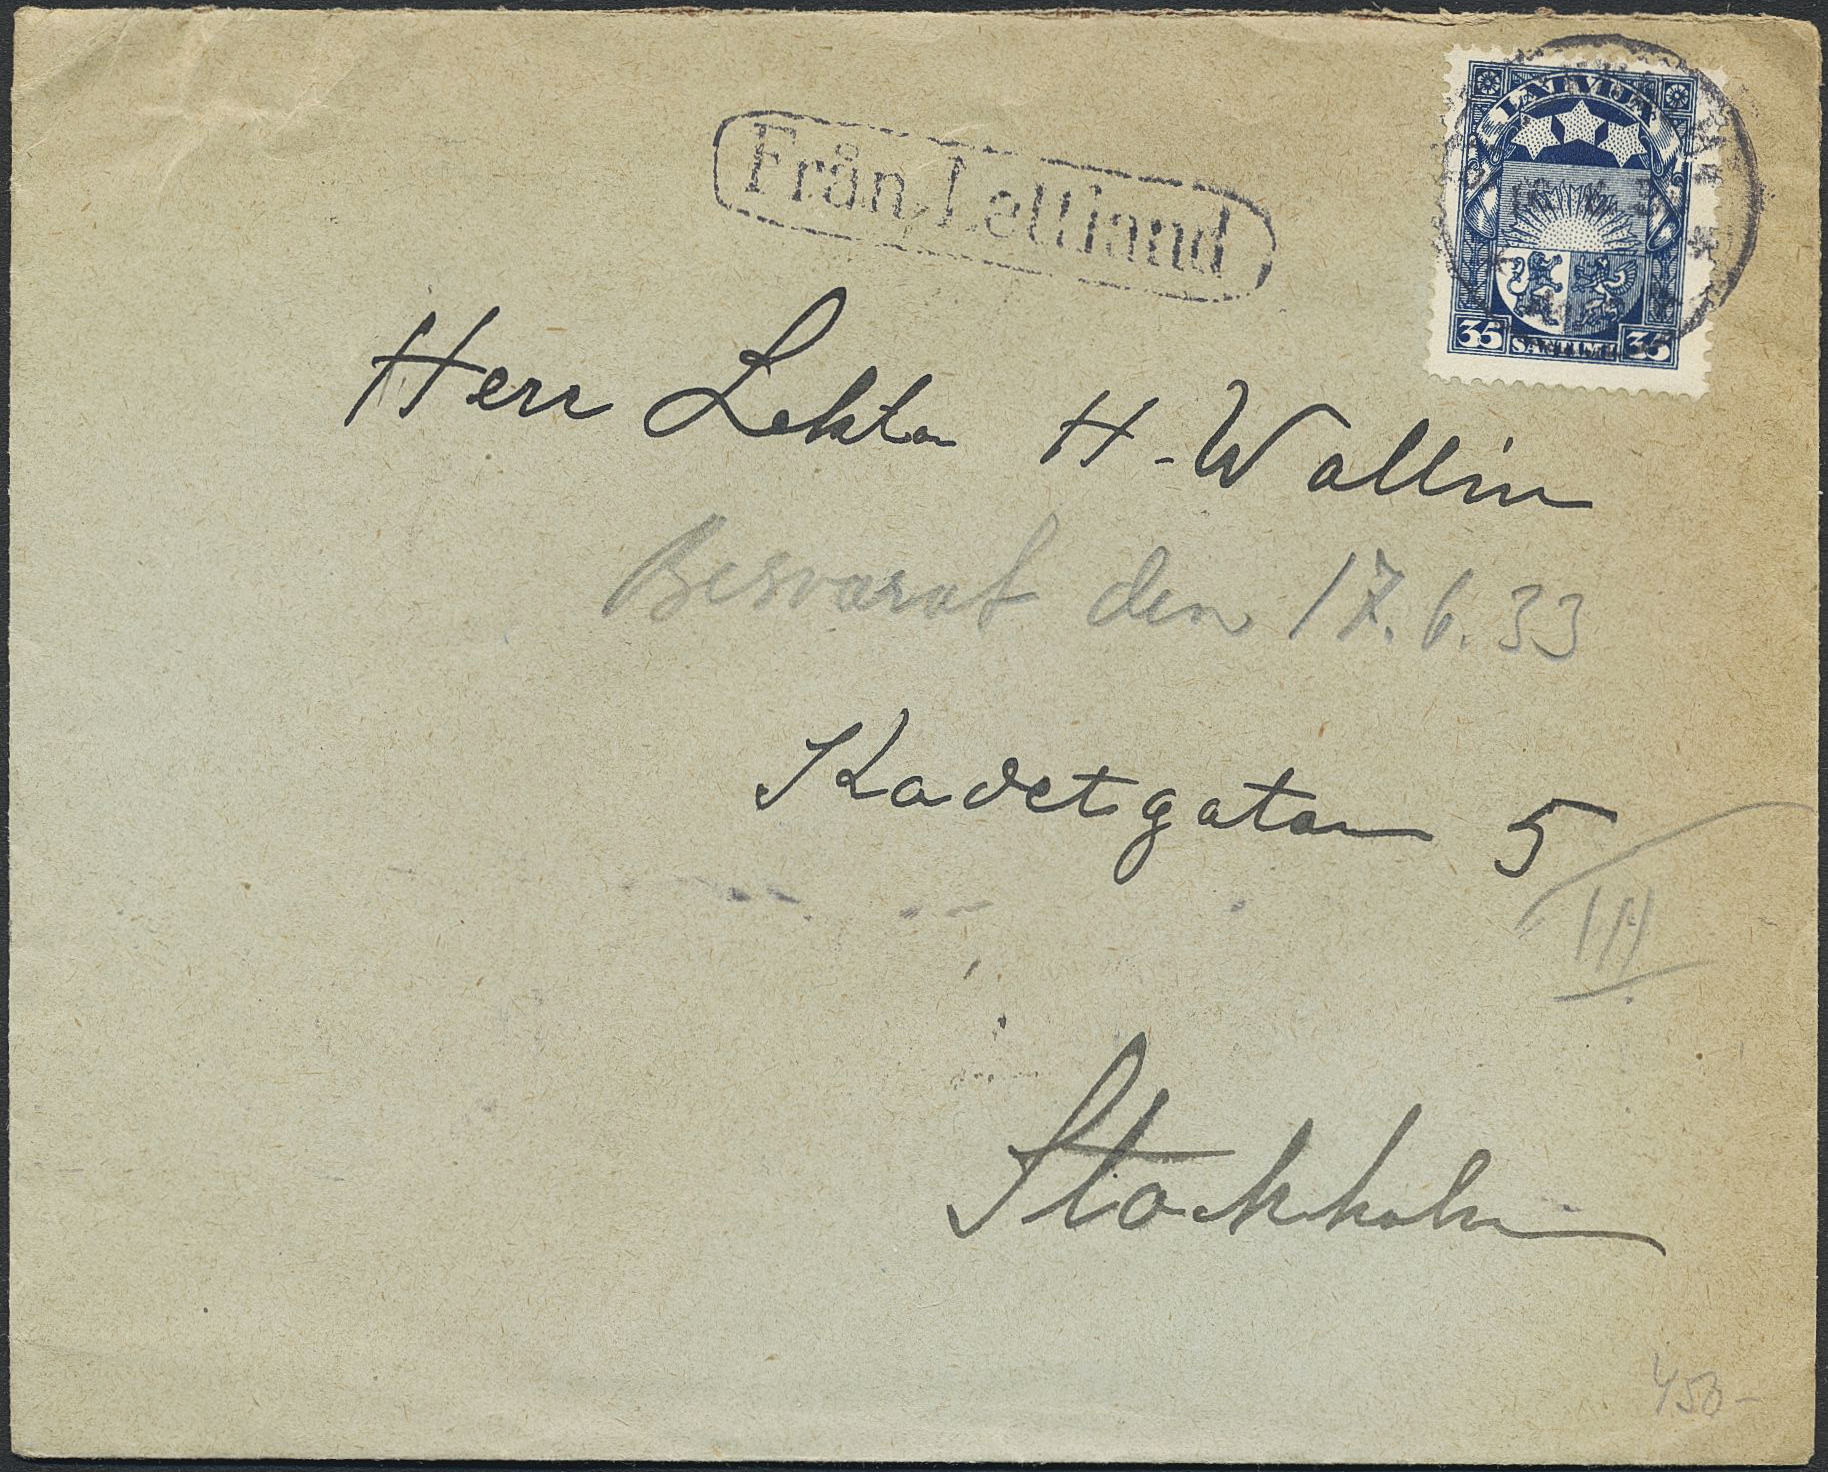 LATVIJA
35 SANTIMU 35
Från Lettland
Herr Lektor H. Wallin
Besvarat den 17.6.33
Kadetgatan 5
III
Stockholm
450-